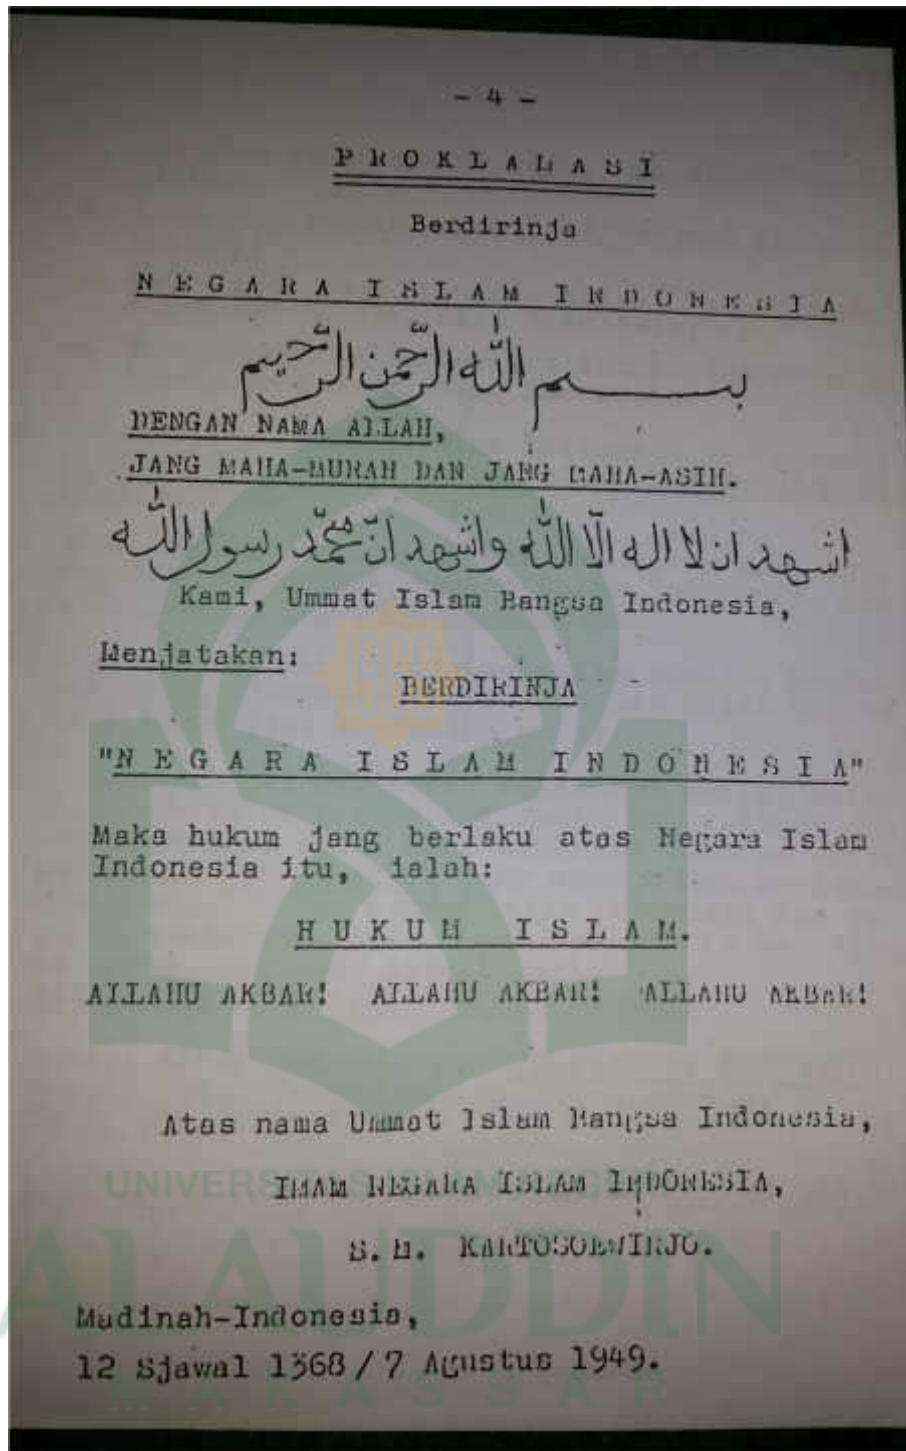 - 4 -
PROKLAMASI
Berdirinja
NEGARA ISLAM INDONESIA
بسم الله الرّحمن الرّحيم
DENGAN NAMA ALLAH,
JANG MAHA-MURAH DAN JANG MAHA-ASIH.
اشهد ان لا اله الّا الله واشهد انّ محمّد رسول الله
Kami, Ummat Islam Bangsa Indonesia,
Menjatakan:
BERDIRINJA
"NEGARA ISLAM INDONESIA"
Maka hukum jang berlaku atas Negara Islam
Indonesia itu, ialah:
HUKUM ISLAM.
ALLAHU AKBAR! ALLAHU AKBAR! ALLAHU AKBAR!
Atas nama Ummat Islam Bangsa Indonesia,
UNIVERSITAS ISLAM NEGERI
IMAM NEGARA ISLAM INDONESIA,
S. M. KARTOSOEWIRJO.
ALAUDDIN
Madinah-Indonesia,
12 Sjawal 1368 / 7 Agustus 1949.
MAKASSAR